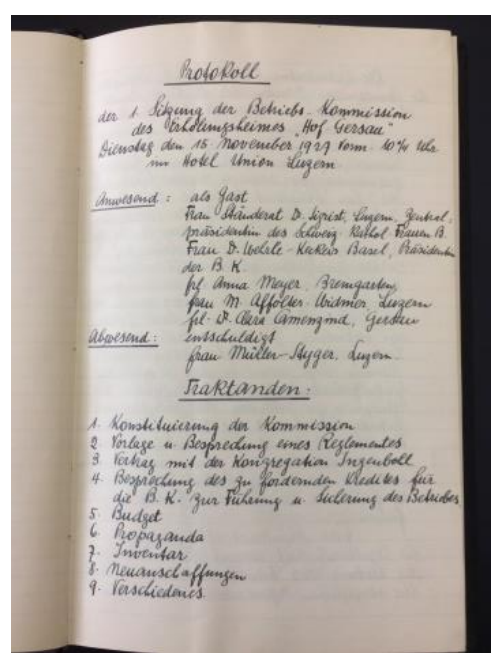 Protokoll
der 1. Sitzung der Betriebs-Kommission
des Erholungsheimes "Hof Gersau"
Dienstag den 15. November 1929 vorm. 10¼ Uhr
im Hotel Union Luzern
Anwesend: als Gast
Frau Ständerat D. Sigrist, Luzern, Zentral-
präsidentin des Schweiz. Kathol. Frauen B.
Frau D. Wehrle- Basel, Präsidentin
der B. K.
Frl. Anna Meyer, Bremgarten,
Frau M. Affolter-Widmer, Luzern
Frl. D. Clara Camenzind, Gersau
Abwesend: entschuldigt
Frau Müller-Styger, Luzern.
Traktanden:
1. Konstituierung der Kommission
2. Vorlage u. Besprechung eines Reglementes
3. Vertrag mit der Kongregation Ingenbohl
4. Besprechung des zu fordernden Kredites für
die B. K. zur Führung u. Sicherung des Betriebes
5. Budget
6. Propaganda
7. Inventar
8. Neuanschaffungen
9. Verschiedenes.